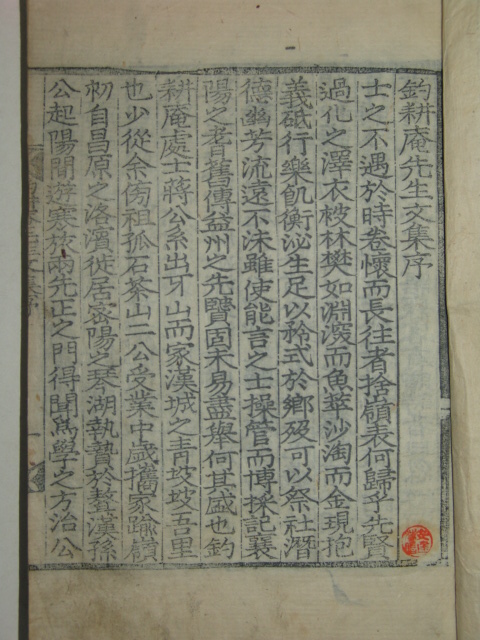 釣耕庵先生文集序
士之不遇於時卷懷而長往者捨嶺表何歸乎先賢
過化之澤衣被林樊如淵瀁而魚萃沙淘而金現抱
義砥行樂飢衡泌生足以矜式於鄉歿可以祭社潛
德幽芳流遠不沬雖使能言之士操管而博採記襄
陽之耆舊傳益州之先賢固未易盡舉何其盛也釣
耕庵處士蔣公系出牙山而家漢城之靑坡坡吾里
也少從余傍祖孤石茶山二公受業中歲擕家踰嶺
初自昌原之洛濱徙居密陽之琴湖執贄於鰲漢孫
公起陽間遊寒旅兩先正之門得聞爲學之方治公